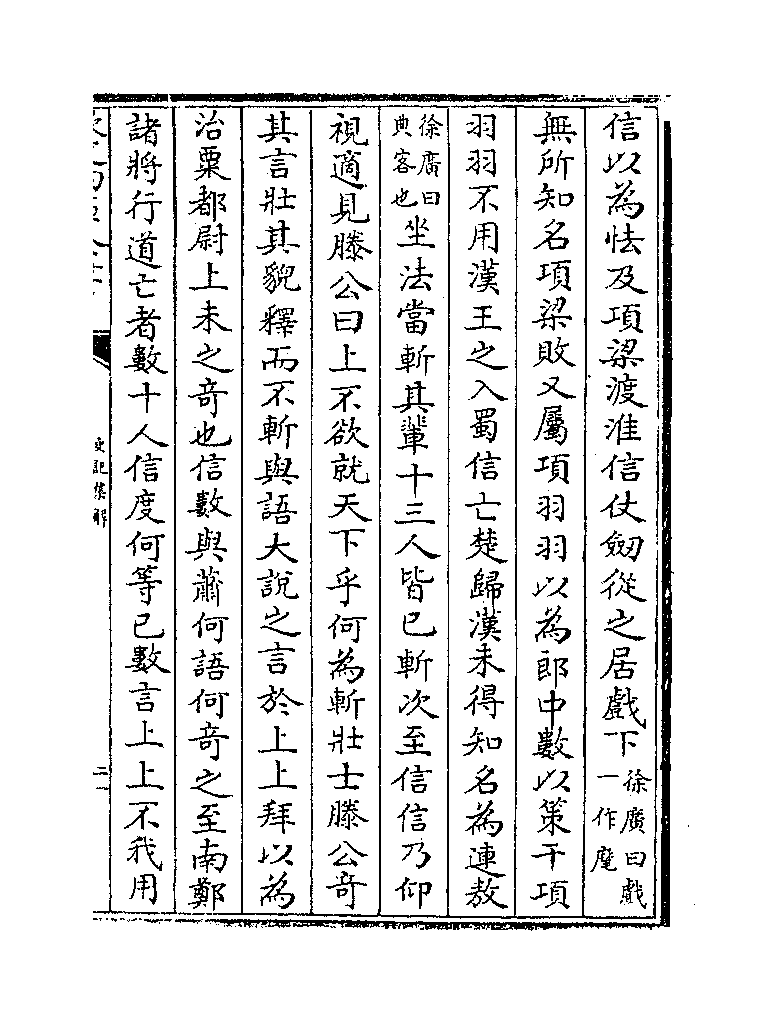 信以為怯及項梁渡淮信仗劒從之居戲下徐廣曰戲一作麾
無所知名項梁敗又屬項羽羽以為郎中數以策干項
羽羽不用漢王之入蜀信亡楚歸漢未得知名為連敖
徐廣曰典客也坐法當斬其輩十三人皆已斬次至信信乃仰
視適見滕公曰上不欲就天下乎何為斬壯士滕公奇
其言壯其貌釋而不斬與語大說之言於上上拜以為
治粟都尉上未之奇也信數與蕭何語何奇之至南鄭
諸將行道亡者數十人信度何等已數言上上不我用
史記集解
二